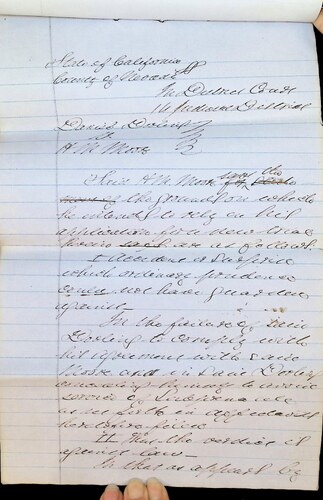 State of California
County of Nevada ss
In District Court
14 Judicial District
Daniel Dooling
vs
A M Moore
Said A. M. Moore says the
the ground on which
he intends to rely on his
application for new trial
herein are as follows
1 Accident or Surprise
which ordinary prudence
could not have guarded
against
In the failure of said
Dooling to comply with
his agreement with said
Moore and in said Dooling
service of Subpoena
as set forth in affidavit
heretofore filed
II That the verdict is
against law
In that it appears by